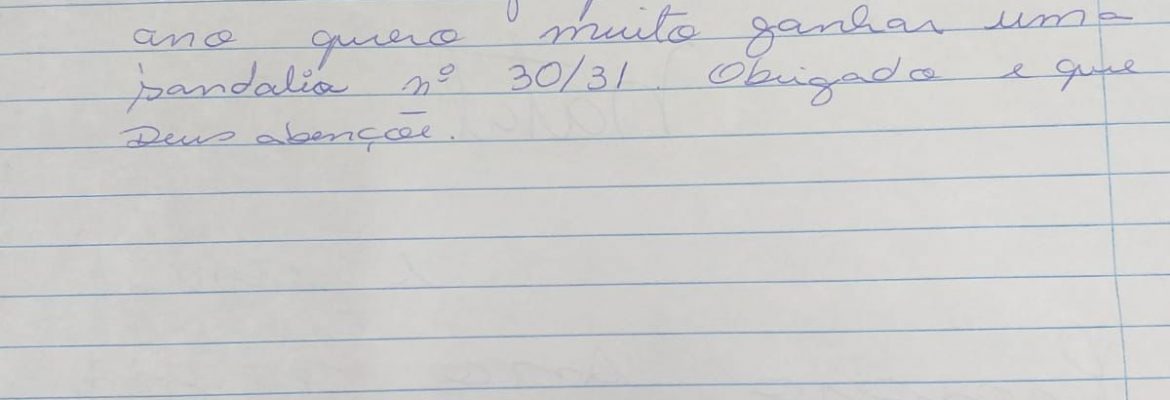 ano quero muito ganhar uma
sandalia nº 30/31. Obrigada e que
Deus abençõe.